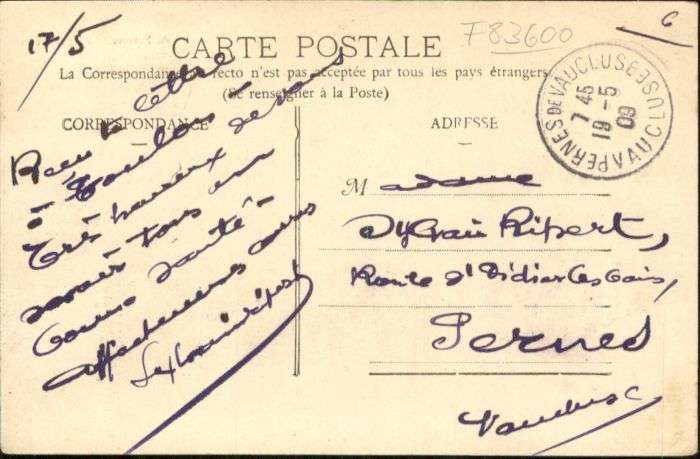 17/5
F83600
6
CARTE POSTALE
La Correspondance recto n'est pas acceptée par tous les pays étrangers
(Se renseigner à la Poste)
CORRESPONDANCE
Reçu ta lettre
à Toulon.
Très heureux de vous
savoir tous en
bonne santé.
affectueuses
ADRESSE
PERNES DE VAUCLUSE
VAUCLUSE
7 45
19 - 5
09
Madame
Sylvain Ripert,
Route St Didier les Bains,
Pernes
Vaucluse